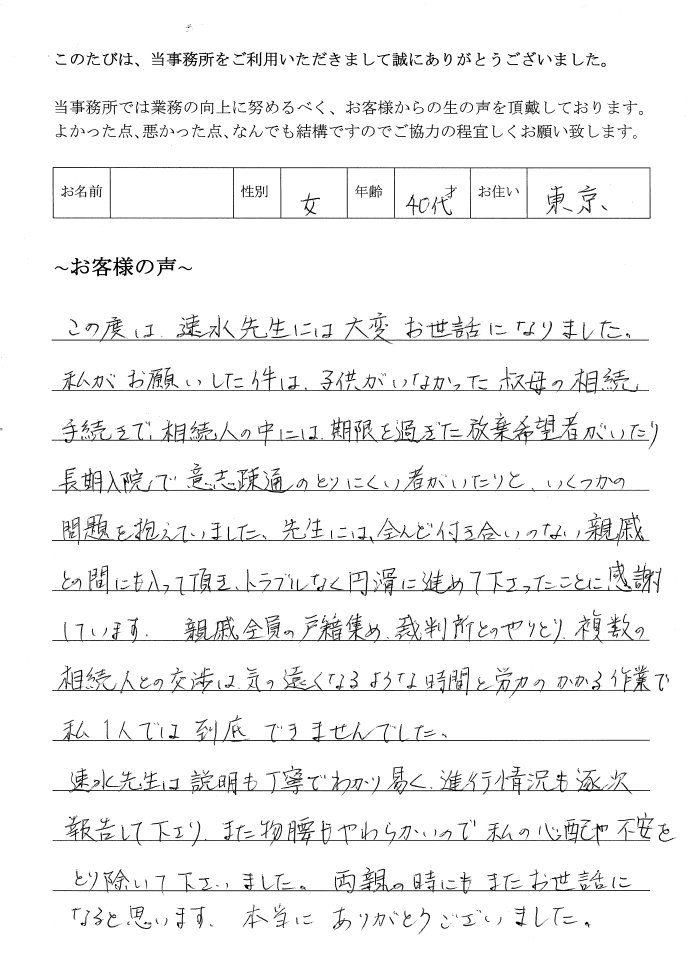 このたびは、当事務所をご利用いただきまして誠にありがとうございました。
当事務所では業務の向上に努めるべく、お客様からの生の声を頂戴しております。
よかった点、悪かった点、なんでも結構ですのでご協力の程宜しくお願い致します。
お名前 性別 女 年齢 40代才 お住い 東京、
~お客様の声~
この度は、速水先生には大変お世話になりました。
私がお願いした件は、子供がいなかった叔母の相続
手続きで、相続人の中には、期限を過ぎた放棄希望者がいたり
長期入院で意志疎通のとりにくい者がいたりと、いくつかの
問題を抱えていました。先生には、全んど付き合いのない親戚
との間にも入って頂き、トラブルなく円滑に進めて下さったことに感謝
しています。 親戚全員の戸籍集め、裁判所とのやりとり、複数の
相続人との交渉は、気の遠くなるような時間と労力のかかる作業で
私1人では到底できませんでした。
速水先生は説明も丁寧でわかり易く、進行情況も逐次
報告して下さり、また物腰もやわらかいので私の心配や不安を
とり除いて下さいました。両親の時にもまたお世話に
なると思います。本当にありがとうございました。